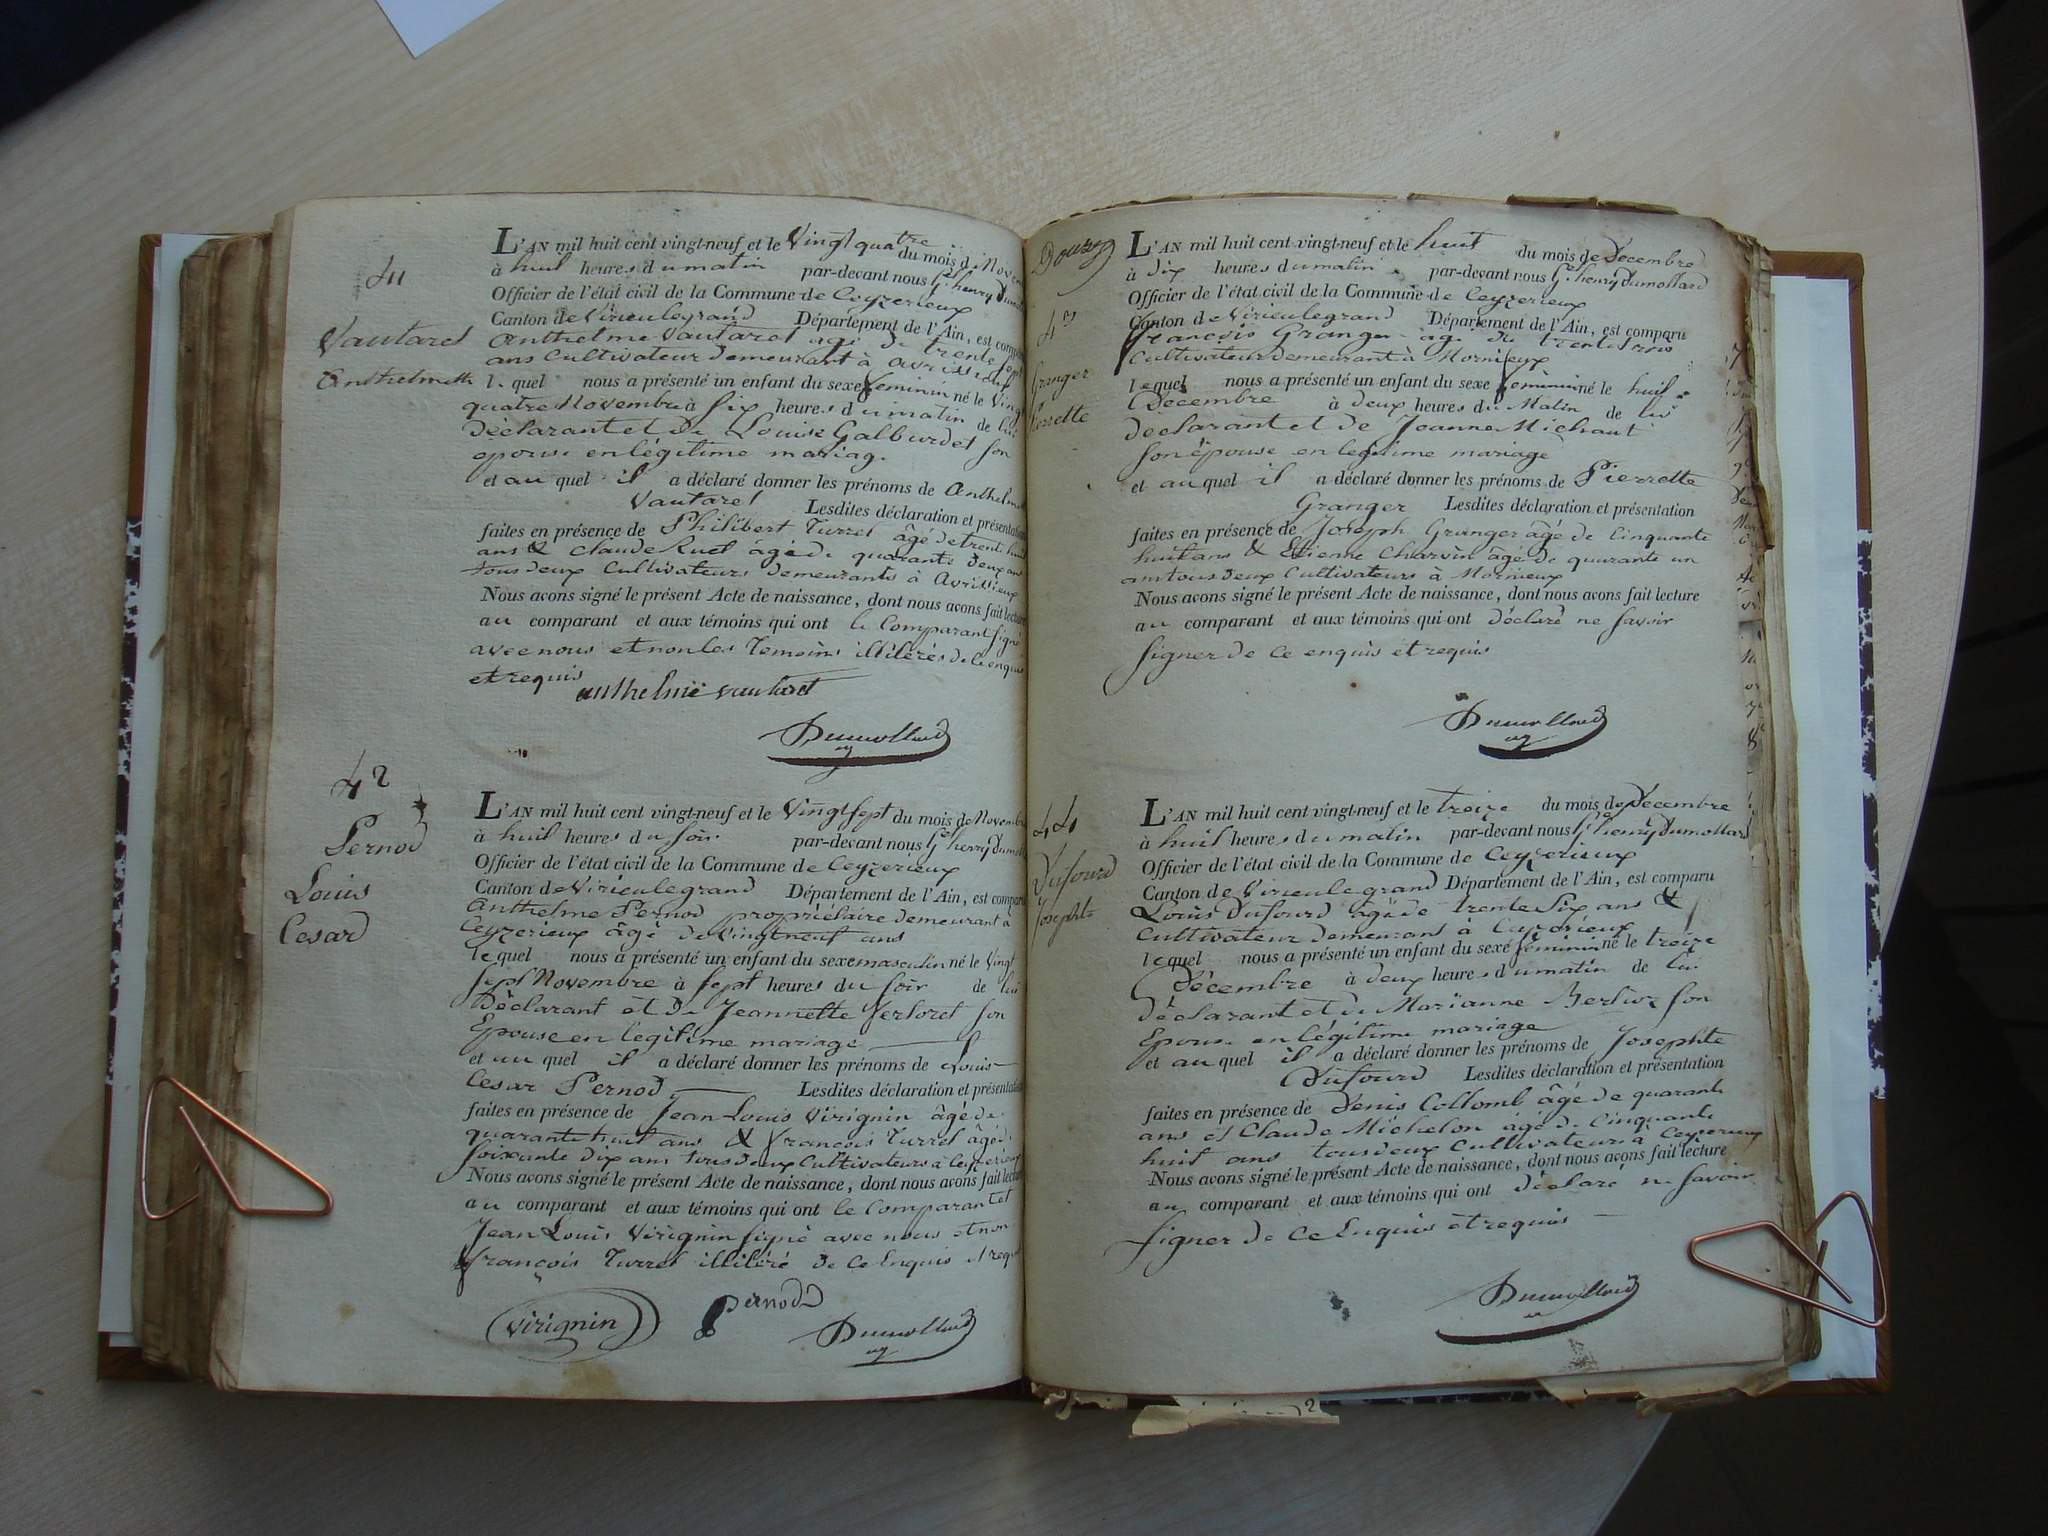 41
Vautaret
Anthelmette
L'AN mil huit cent vingt-neuf et le Vingt quatre du mois de
à huit heures du matin par-devant nous Gme henry
Officier de l'état civil de la Commune de Ceyzerieux
Canton de Virieulegrand Département de l'Ain, est
Anthelme Vautaret agé de trente Sept
ans Cultivateur demeurant à avrissieux
lequel nous a présenté un enfant du sexe féminin né le Vingt
quatre Novembre à Six heures du matin de lui
déclarant et de Louise Galburdet son
epouse en légitime mariag.
et au quel il a déclaré donner les prénoms de
Vautaret Lesdites déclaration et présentation
faites en présence de Philibert Turrel âgé de trente huit
ans & Claude Ruet âgé de quarante deux ans
tous deux Cultivateurs demeurants à Avrissieux
Nous avons signé le présent Acte de naissance, dont nous avons fait lecture
au comparant et aux témoins qui ont le Comparant signé
avec nous et non les Temoins illitérés de ce enquis
et requis
anthelme vautaret
Dumollard
42
Pernod
Louis
Cesar
L'AN mil huit cent vingt-neuf et le Vingt Sept du mois de Novembre
à huit heures du soir par-devant nous Gme henry
Officier de l'état civil de la Commune de Ceyzerieux
Canton de Virieulegrand Département de l'Ain, est
Anthelme Pernod propriétaire demeurant à
Ceyzerieux âgé de vingt neuf ans
lequel nous a présenté un enfant du sexe masculin né le Vingt
Sept Novembre à Sept heures du Soir de lui
Déclarant et de Jeannette Verloret son
Epouse en légitime mariage
et au quel il a déclaré donner les prénoms de Louis
Cesar Pernod Lesdites déclaration et présentation
faites en présence de Jean Louis Virignin âgé de
quarante huit ans & François Turrel âgé de
soixante dix ans tous deux Cultivateurs à Ceyzerieux
Nous avons signé le présent Acte de naissance, dont nous avons fait lecture
au comparant et aux témoins qui ont le Comparant et
Jean Louis Virignin signé avec nous et non
françois Turrel illitéré de ce Enquis et
Virignin Pernod
Dumollard
Douze
43
Granger
Pierrette
L'AN mil huit cent vingt-neuf et le huit du mois de Decembre
à dix heures du matin par-devant nous Gme henry Dumollard
Officier de l'état civil de la Commune de Ceyzerieux
Canton de Virieulegrand Département de l'Ain, est comparu
François Granger agé de trente trois
Cultivateur demeurant à Mornieux
lequel nous a présenté un enfant du sexe féminin né le huit
Décembre à deux heures du Matin de lui
declarant et de Jeanne Michaut
Son épouse en legitime mariage
et au quel il a déclaré donner les prénoms de Pierrette
Granger Lesdites déclaration et présentation
faites en présence de Joseph Granger âgé de Cinquante
huit ans & Etienne Charvin âgé de quarante un
ans tous deux Cultivateurs à Mornieux
Nous avons signé le présent Acte de naissance, dont nous avons fait lecture
au comparant et aux témoins qui ont déclaré ne savoir
signer de ce enquis et requis
Dumollard
44
Dufourd
Josephte
L'AN mil huit cent vingt-neuf et le treize du mois de Decembre
à huit heures du matin par-devant nous Gme henry Dumollard
Officier de l'état civil de la Commune de Ceyzerieux
Canton de Virieulegrand Département de l'Ain, est comparu
Louis Dufourd âgé de trente Six ans &
Cultivateur demeurans à
lequel nous a présenté un enfant du sexe féminin né le treize
Décembre à deux heures du matin de lui
déclarant et de Marianne Berlioz son
Epouse en légitime mariage
et au quel il a déclaré donner les prénoms de Josephte
Dufourd Lesdites déclaration et présentation
faites en présence de Denis Collomb âgé de quarante
ans et Claude Michelon âgé de Cinquante
huit ans tous deux Cultivateurs à Ceyzerieux
Nous avons signé le présent Acte de naissance, dont nous avons fait lecture
au comparant et aux témoins qui ont déclaré ne savoir
signer de ce Enquis et requis
Dumollard